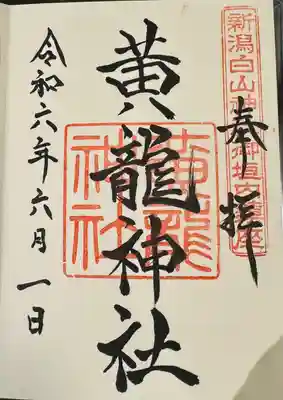 新潟白山神社御境内鎮座
奉拝
黄龍神社
黄龍神社
令和六年六月一日